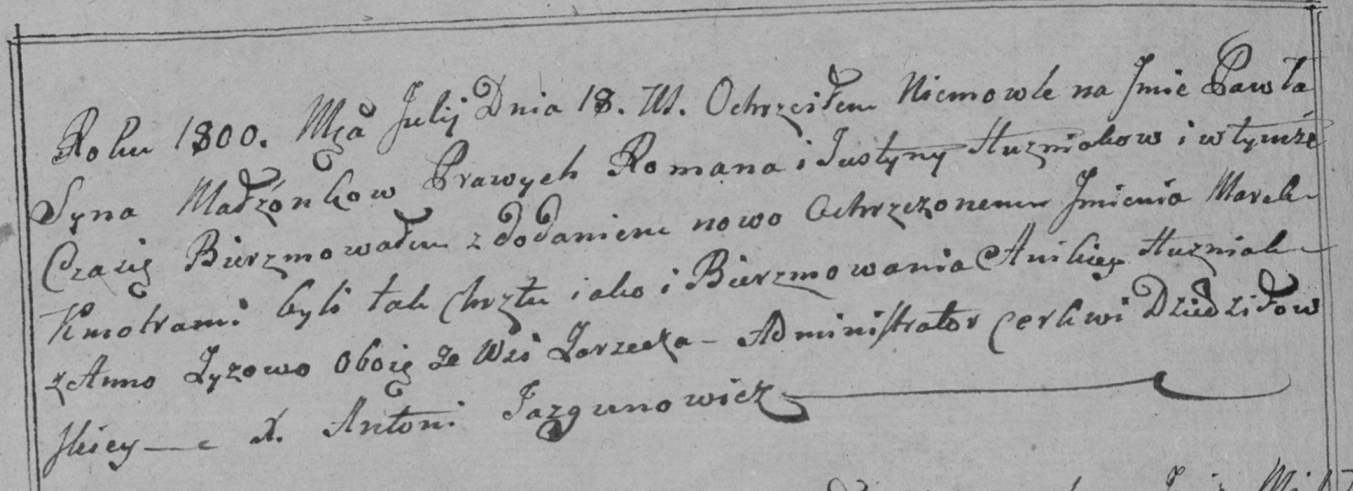 Roku 1800. Mca Julij Dnia 18. W. Ochrzciłem Niemowle na Jmie Pawła
Syna Małżonkow Prawych Romana i Justyny Huzniakow i w tymże
Czasię Bierzmowałem z dodaniem nowo Ochrzczonemu Jmienia Marek
Kmotrami byli tak Chrztu iako i Bierzmowania Anikiey Huzniak
z Anno Zyzowo Oboię ze Wsi Zarzecza - Administrator Cerkwi Dziedziłow
skiey — X. Antoni Jazgunowicz